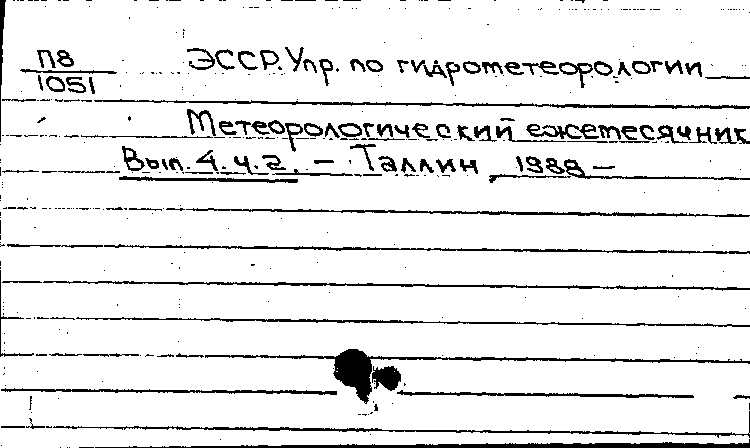 П8 ЭССР. Упр. по гидрометеорологии
1051
Метеорологический ежемесячник
Вып. 4. ч. 2. – Таллин, 1988 –